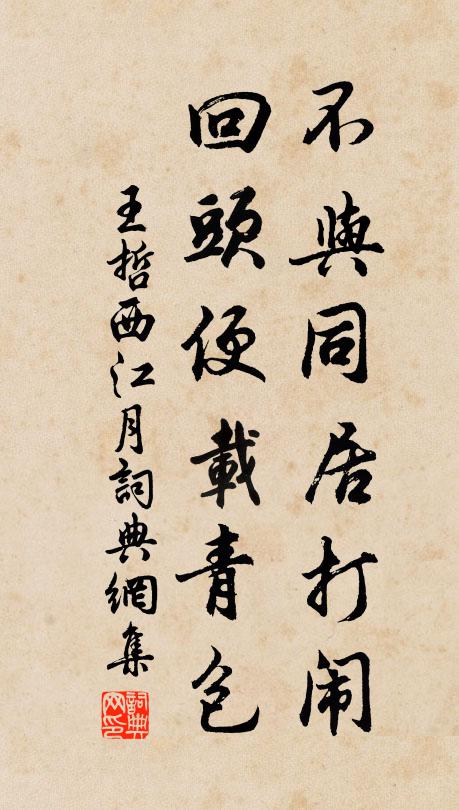 不與同居打闹
回頭便載青包
王哲西江月詞典網集
詞典网印